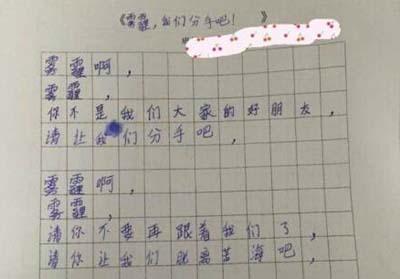 《雾霾,我们分手吧! 》
雾霾啊,
雾霾,
你不是我们大家的好朋友,
请让我们分手吧,
雾霾啊,
雾霾,
请你不要再跟着我们了,
请你让我们脱离苦海吧,